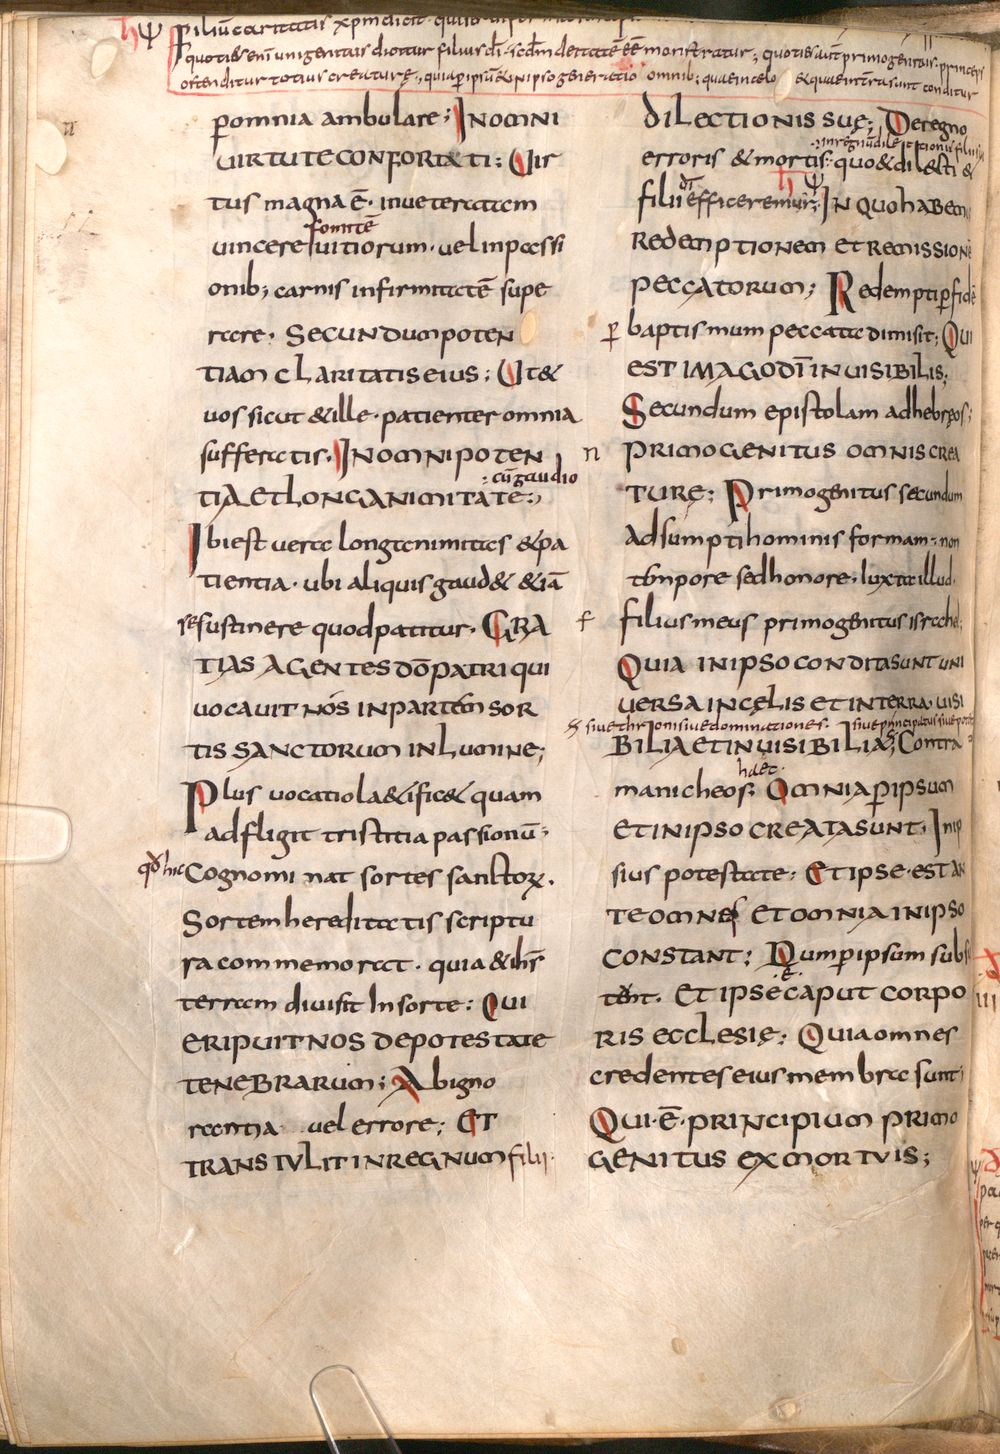 Filiū caritatis xpm dicit. quia
quotiēs enī unigenitus dicitur filius dī. scdm deitatē eē monstratur; quotiēs autē primogenitus. princeps
ostenditur totius creaturę. quia p ipsū & in ipso generatio omnib; quae in celo & quae in terra sunt conditur
p omnia ambulare; IN OMNI
UIRTUTE CONFORTATI; Uir
tus magna ē. inueteratam
fomitē
uincere uitiorum. uel in passi
onib; carnis infirmitatē supe
rare. SECUNDUM POTEN
TIAM CLARITATIS EIUS; Ut &
uos sicut & ille. patienter omnia
sufferatis. IN OMNI POTEN
: cū gaudio
TIA ET LONGANIMITATE;
Ibi est uera longanimitas & pa
tientia. ubi aliquis gaud& & iā
se sustinere quod patitur. GRA
TIAS AGENTES DŌ PATRI QUI
UOCAUIT NOS IN PARTEM SOR
TIS SANCTORUM IN LUMINE;
Plus uocatio laetific& quam
adfligit tristitia passionū;
qđ hic Cognominat sortes sanctorꝝ.
Sortem hereditatis scriptu
ra commemorat. quia & ihs
terram diuisit In sorte: QUI
ERIPUIT NOS DE POTESTATE
TENEBRARUM; Ab igno
rantia uel errore; ET
TRANSTULIT IN REGNUM filii.
DILECTIONIS SUĘ; De regno
: in regnū dilectionis filii sui
erroris & mortis: quo & dilecti &
filii dī efficeremur; IN QUO HABEM
REDEMPTIONEM ET REMISSIONĒ
PECCATORUM; Redempti p fidē
p baptismum peccata dimisit; QUI
EST IMAGO DĪ INUISIBILIS;
Secundum epistolam ad hebreos;
PRIMOGENITUS OMNIS CREA
TURĘ; Primogenitus secundum
adsumpti hominis formam: non
tempore sed honore; luxta illud.
filius meus primogenitus israhel;
QUIA IN IPSO CONDITA SUNT UNI
UERSA IN CĘLIS ET IN TERRA. UISI
siue throni siue dominationes. siue principatus siue potes
BILIA ET INUISIBILIA; Contra
haec
manicheos; OMNIA P IPSUM
ET IN IPSO CREATA SUNT. In ip
sius potestate; ET IPSE EST AN
TE OMNES ET OMNIA IN IPSO
CONSTANT; Dum p ipsum subs
tent. ET IPSE Ē CAPUT CORPO
RIS ECCLESIĘ; Quia omnes
credentes eius membra sunt;
QUI. Ē. PRINCIPIUM PRIMO
GENITUS EX MORTUIS;